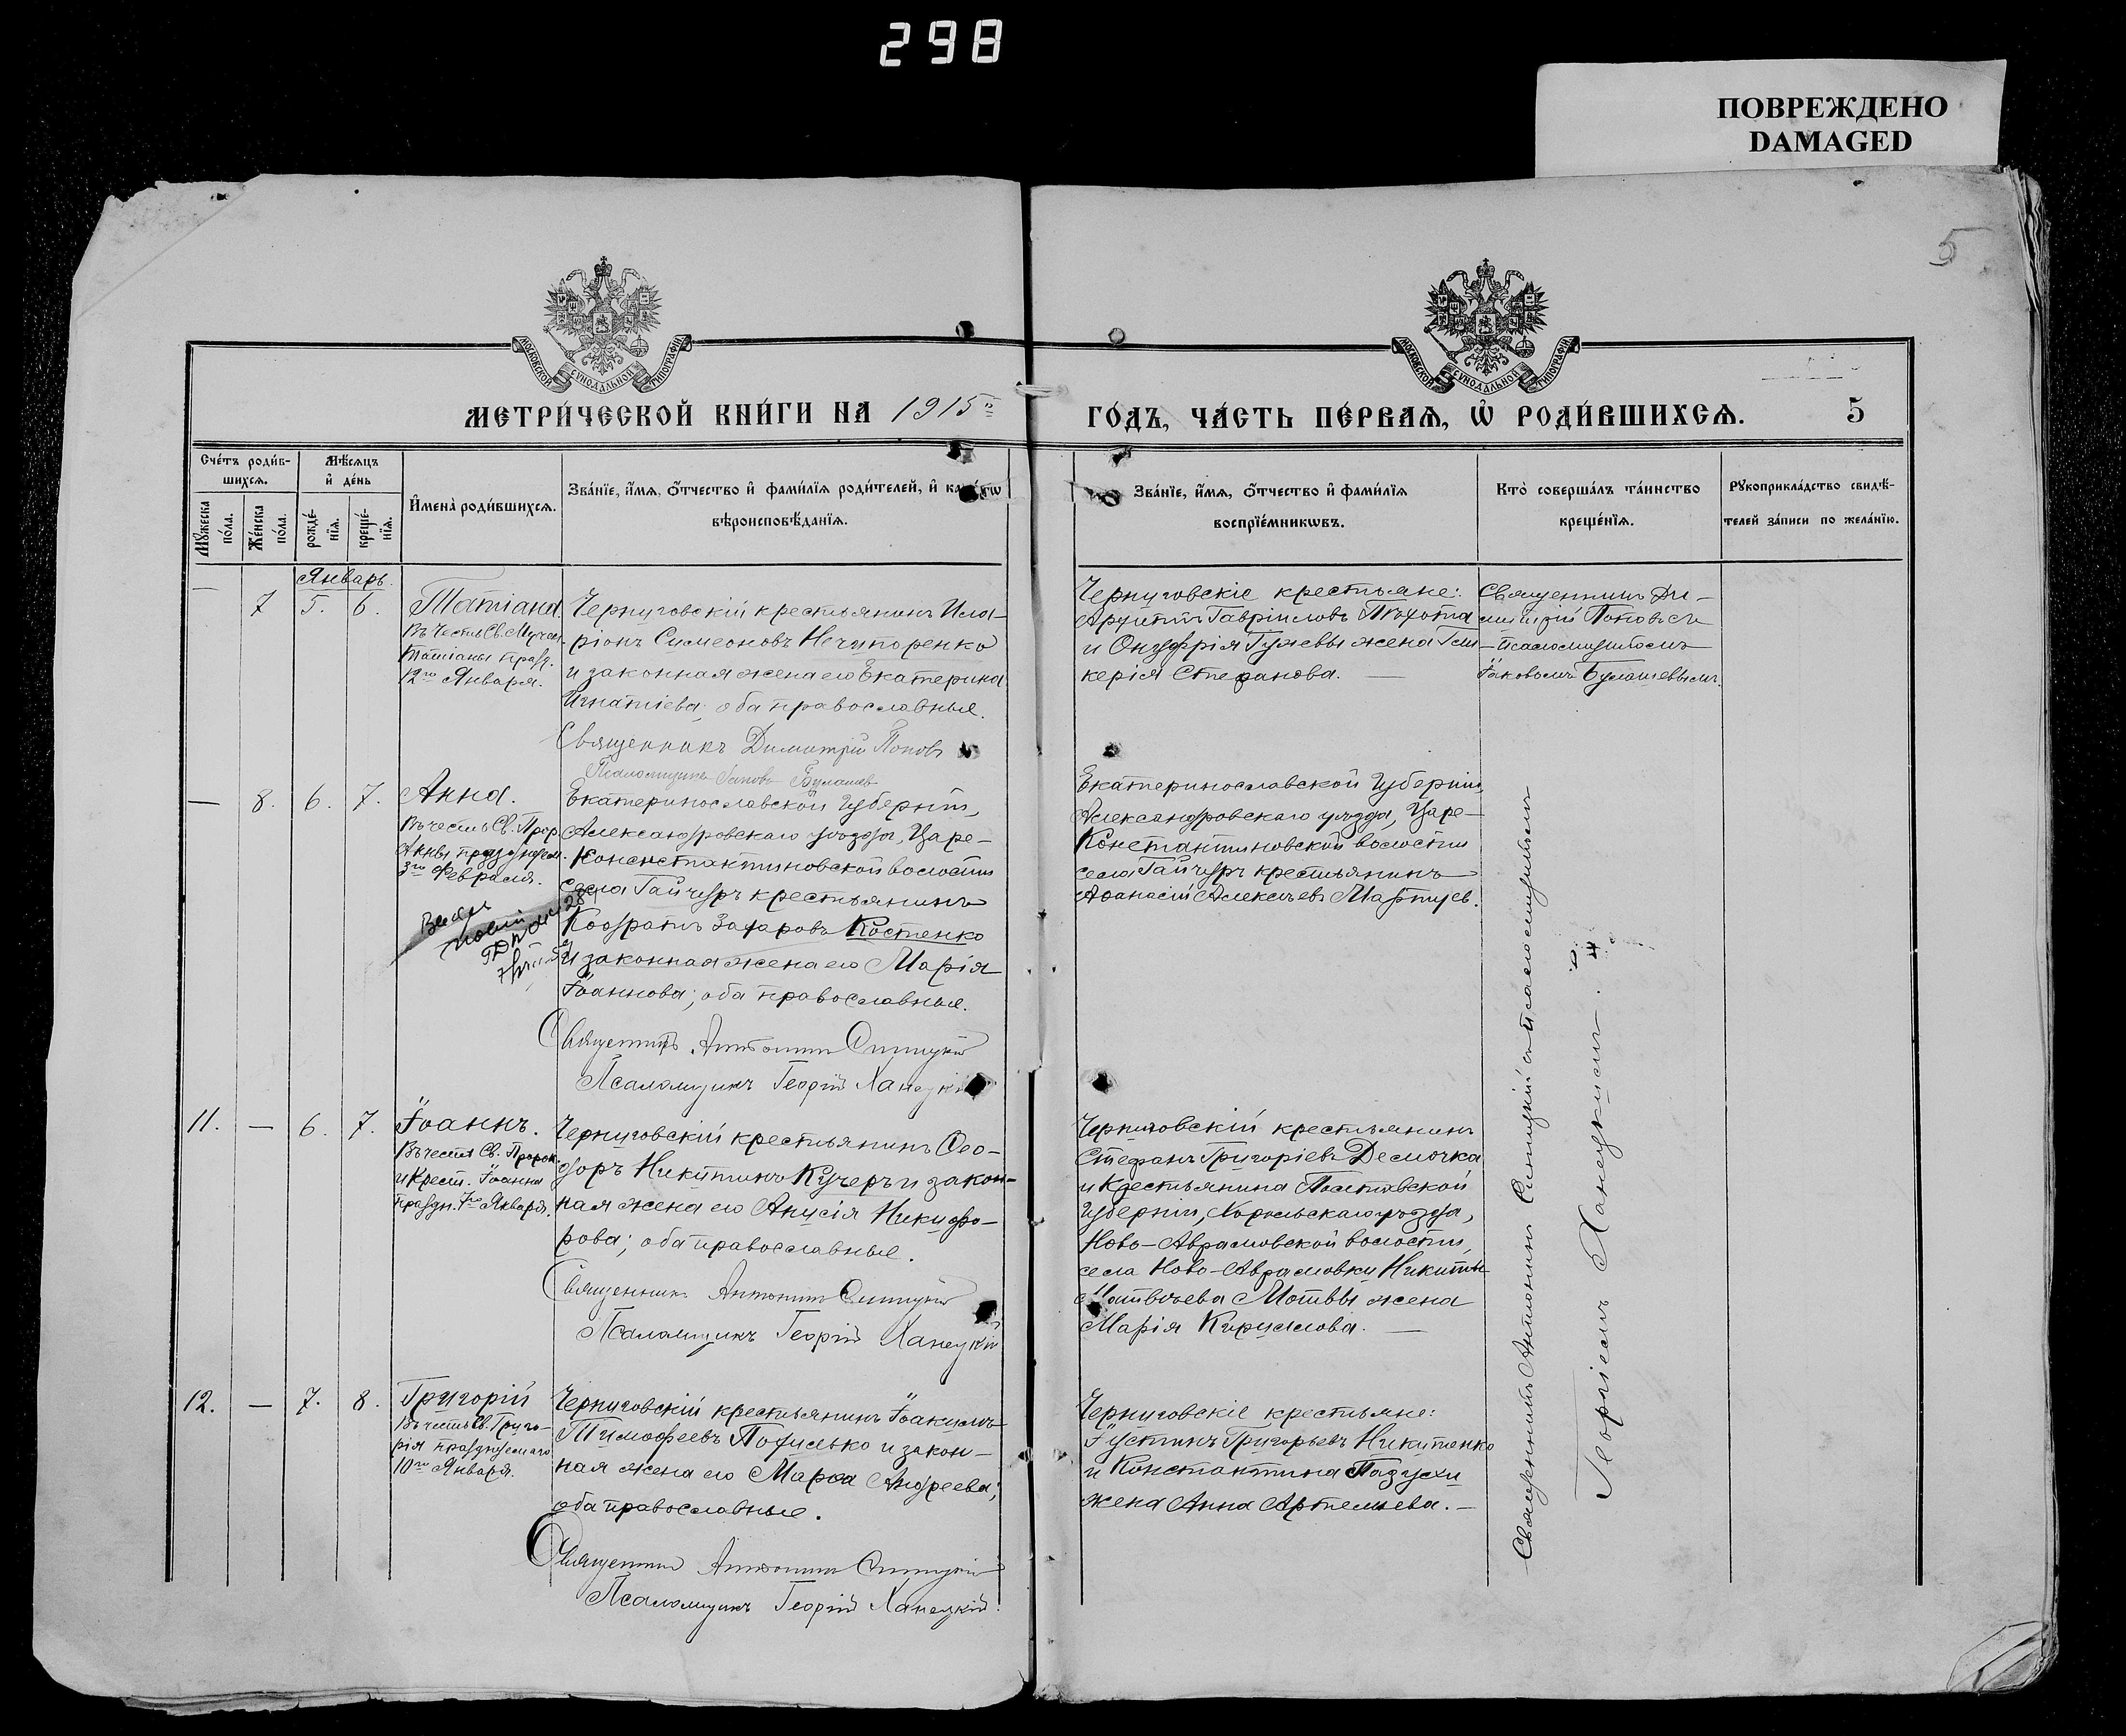 298
ПОВРЕЖДЕНО
DAMAGED
5
МОСКОВСКОЙ СѴНОДАЛЬНОЙ ТИПОГРАФІИ
МОСКОВСКОЙ СѴНОДАЛЬНОЙ ТИПОГРАФІИ
МЕТРИ́ЧЕСКОЙ КНИ́ГИ НА 1915й
ГО́ДЪ, ЧА́СТЬ ПЕ́РВАѦ, Ѽ РОДИ́ВШИХСѦ. 5
Сче́тъ роди́в-
шихсѧ.
Мꙋ́жеска по́ла.
Же́нска по́ла.
Мѣ́сѧцъ
и҆ де́нь
рожде́-
нїѧ.
креще́-
нїѧ.
И҆мена̀ роди́вшихсѧ.
Зва́нїе, и҆́мѧ, ѻ҆́тчество и҆ фами́лїѧ роди́телей, и҆
вѣроисповѣ́данїѧ.
Зва́нїе, и҆́мѧ, ѻ҆́тчество и҆ фами́лїѧ
воспрїе́мникѡвъ.
Кто̀ соверша́лъ та́инство
креще́нїѧ.
Рꙋкоприкла́дство свидѣ́-
телей за́писи по жела́нїю.
Январь.
— 7 5. 6.
Татіана
Въ честь Св. Мучен.
Татіаны празд.
12го Января.
Черниговскій крестьянинъ Ила-
ріонъ Симеоновъ Нечипоренко
и законная жена его Екатерина
Игнатіева; оба православные.
Священникъ Димитрій Поповъ
Псаломщикъ Іаковъ Булашев
Черниговскіе крестьяне:
Архипъ Гавріиловъ Пѣхота
и Онуфрія Гужевы жена Гли-
керія Стефанова. —
Священникъ Ди-
митрій Поповъ съ
псаломщикомъ
Іаковомъ Булашевымъ.
— 8. 6. 7.
Анна.
Въ честь Св. Прор.
Анны празднуем.
3го Февраля.
Екатеринославской губерніи,
Александровскаго уѣзда, Царе-
Константиновской волости
села Гайчуръ крестьянинъ
Кодратъ Захаровъ Костенко
и законная жена его Марія
Іоаннова; оба православные.
Священникъ Антоній Синицкій
Псаломщикъ Георгій Ханецкій
Екатеринославской губерніи,
Александровскаго уѣзда, Царе-
Константиновской волости
села Гайчуръ крестьянинъ
Аѳанасій Алексѣевъ Мартусь.
11. — 6. 7.
Іоаннъ.
Въ честь Св. Пророк.
и Крест. Іоанна
праздн. 7го Января.
Черниговскій крестьянинъ Ѳео-
доръ Никитинъ Кучеръ и закон-
ная жена его Анисія Никифо-
рова; оба православные.
Священникъ Антоній Синицкій
Псаломщикъ Георгій Ханецкій
Черниговскій крестьянинъ
Стефанъ Григоріевъ Демочка
и крестьянина Полтавской
губерніи, Хорольскаго уѣзда,
Ново-Аврамовской волости,
села Ново-Аврамовки Никиты
Матвѣева Мотвы жена
Марія Кириллова. —
12. — 7. 8.
Григорій
Въ честь Св. Григо-
рія празднуемаго
10го Января.
Черниговскій крестьянинъ Іоакимъ
Тимофеевъ Похилько и закон-
ная жена его Марѳа Андреева;
оба православные.
Священникъ Антоній Синицкій
Псаломщикъ Георгій Ханецкій.
Черниговскіе крестьяне:
Іустинъ Григорьевъ Никитенко
и Константина Падусхи
жена Анна Артемьева. —
Священникъ Антоній Синицкій съ псаломщикомъ
Георгіемъ Ханецкимъ.